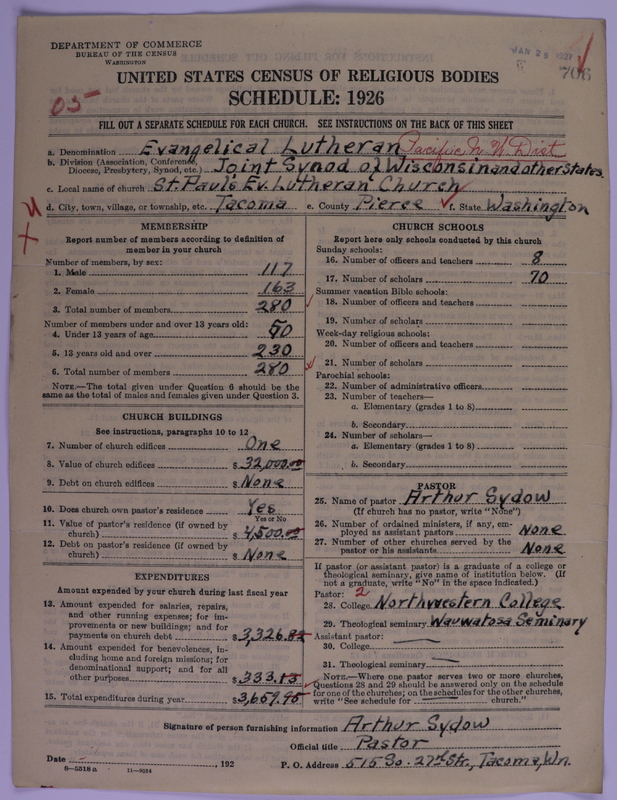 DEPARTMENT OF COMMERCE
BUREAU OF THE CENSUS
WASHINGTON
JAN 25 1927
706
UNITED STATES CENSUS OF RELIGIOUS BODIES
SCHEDULE: 1926
05-
FILL OUT A SEPARATE SCHEDULE FOR EACH CHURCH. SEE INSTRUCTIONS ON THE BACK OF THIS SHEET
a. Denomination Evangelical Lutheran Pacific N.W. Dist
b. Division (Association, Conference, Diocese, Presbytery, Synod, etc.) Joint Synod of Wisconsin and other States.
c. Local name of church St. Paul's Ev. Lutheran Church
d. City, town, village, or township, etc. Tacoma e. County Pierce f. State Washington
MEMBERSHIP
Report number of members according to definition of
member in your church
Number of members, by sex:
1. Male 117
2. Female 163
3. Total number of members 280
Number of members under and over 13 years old:
4. Under 13 years of age 50
5. 13 years old and over 230
6. Total number of members 280
NOTE.—The total given under Question 6 should be the
same as the total of males and females given under Question 3.
CHURCH BUILDINGS
See instructions, paragraphs 10 to 12
7. Number of church edifices One
8. Value of church edifices $ 32,000.00
9. Debt on church edifices $ None
10. Does church own pastor's residence Yes
Yes or No
11. Value of pastor's residence (if owned by
church) $ 4,500.00
12. Debt on pastor's residence (if owned by
church) $ None
EXPENDITURES
Amount expended by your church during last fiscal year
13. Amount expended for salaries, repairs,
and other running expenses; for im-
provements or new buildings; and for
payments on church debt $ 3,326.82
14. Amount expended for benevolences, in-
cluding home and foreign missions; for
denominational support; and for all
other purposes $ 333.13
15. Total expenditures during year $ 3,659.95
CHURCH SCHOOLS
Report here only schools conducted by this church
Sunday schools:
16. Number of officers and teachers 8
17. Number of scholars 70
Summer vacation Bible schools:
18. Number of officers and teachers
19. Number of scholars
Week-day religious schools:
20. Number of officers and teachers
21. Number of scholars
Parochial schools:
22. Number of administrative officers
23. Number of teachers—
a. Elementary (grades 1 to 8)
b. Secondary
24. Number of scholars—
a. Elementary (grades 1 to 8)
b. Secondary
PASTOR
25. Name of pastor Arthur Sydow
(If church has no pastor, write "None")
26. Number of ordained ministers, if any, em-
ployed as assistant pastors None
27. Number of other churches served by the
pastor or his assistants None
If pastor (or assistant pastor) is a graduate of a college or
theological seminary, give name of institution below. (If
not a graduate, write "No" in the space indicated.)
Pastor: 2
28. College Northwestern College
29. Theological seminary Wauwatosa Seminary
Assistant pastor:
30. College
31. Theological seminary
NOTE.—Where one pastor serves two or more churches,
Questions 28 and 29 should be answered only on the schedule
for one of the churches; on the schedules for the other churches,
write "See schedule for church."
Signature of person furnishing information Arthur Sydow
Official title Pastor
Date , 192
P. O. Address 515 So. 27th Str., Tacoma, Wn.
8—5518 a 11—9064